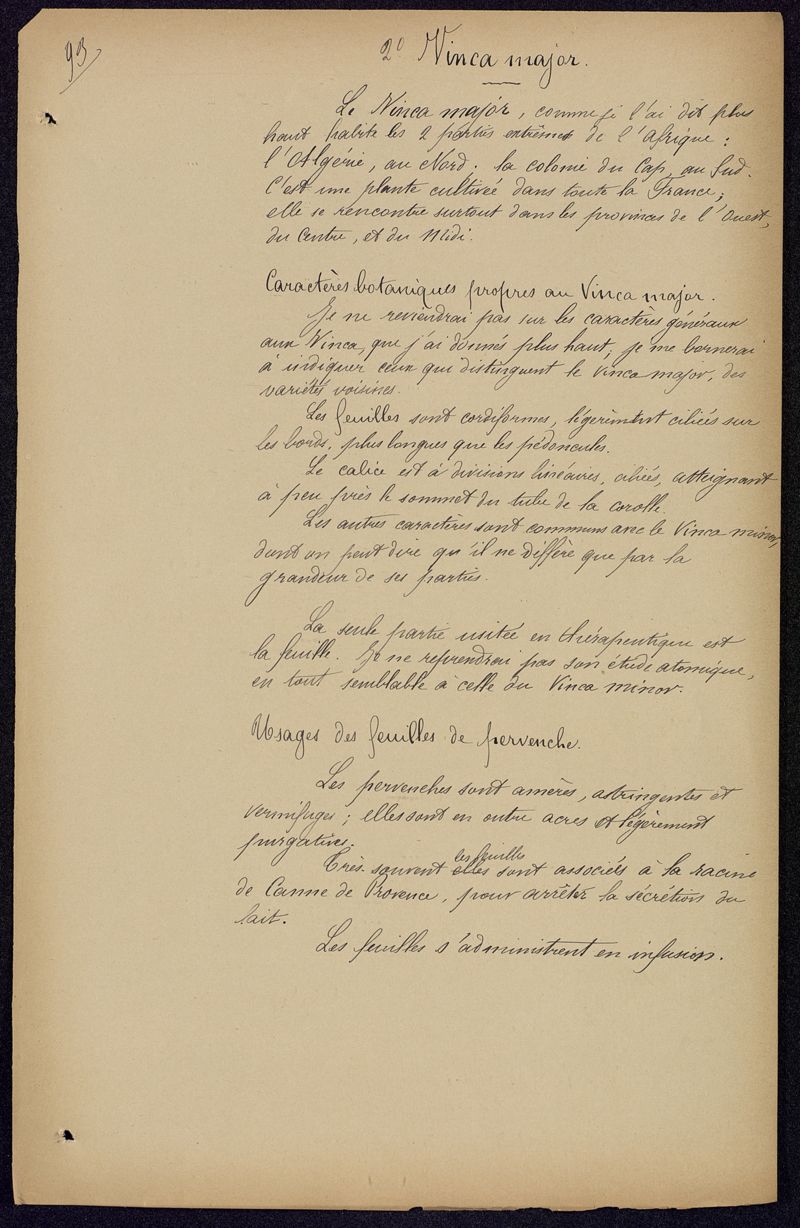 93
2° Vinca major.
Le Vinca major, comme je l'ai dit plus
haut habite les 2 parties extrêmes de l'Afrique :
l'Algérie, au Nord. la colonie du Cap, au Sud.
C'est une plante cultivée dans toute la France;
elle se rencontre surtout dans les provinces de l'Ouest,
du Centre, et du Midi.
Caractères botaniques propres au Vinca major.
Je ne reviendrai pas sur les caractères généraux
aux Vinca, que j'ai donnés plus haut; je me bornerai
à indiquer ceux qui distinguent le Vinca major, des
variétés voisines.
Les feuilles sont cordiformes, légèrement ciliées sur
les bords, plus longues que les pédoncules.
Le calice est à divisions linéaires, ciliées, atteignant
à peu près le sommet du tube de la corolle.
Les autres caractères sont communs avec le Vinca minor,
dont on peut dire qu'il ne diffère que par la
grandeur de ses parties.
La seule partie usitée en thérapeutique est
la feuille. Je ne reprendrai pas son étude atomique,
en tout semblable à celle du Vinca minor.
Usages des feuilles de pervenche.
Les pervenches sont amères, astringentes et
vermifuges; elles sont en outre acres et légèrement
purgatives.
les feuilles
Très souvent elles sont associées à la racine
de Canne de Provence, pour arrêter la sécrétion du
lait.
Les feuilles s'administrent en infusion.